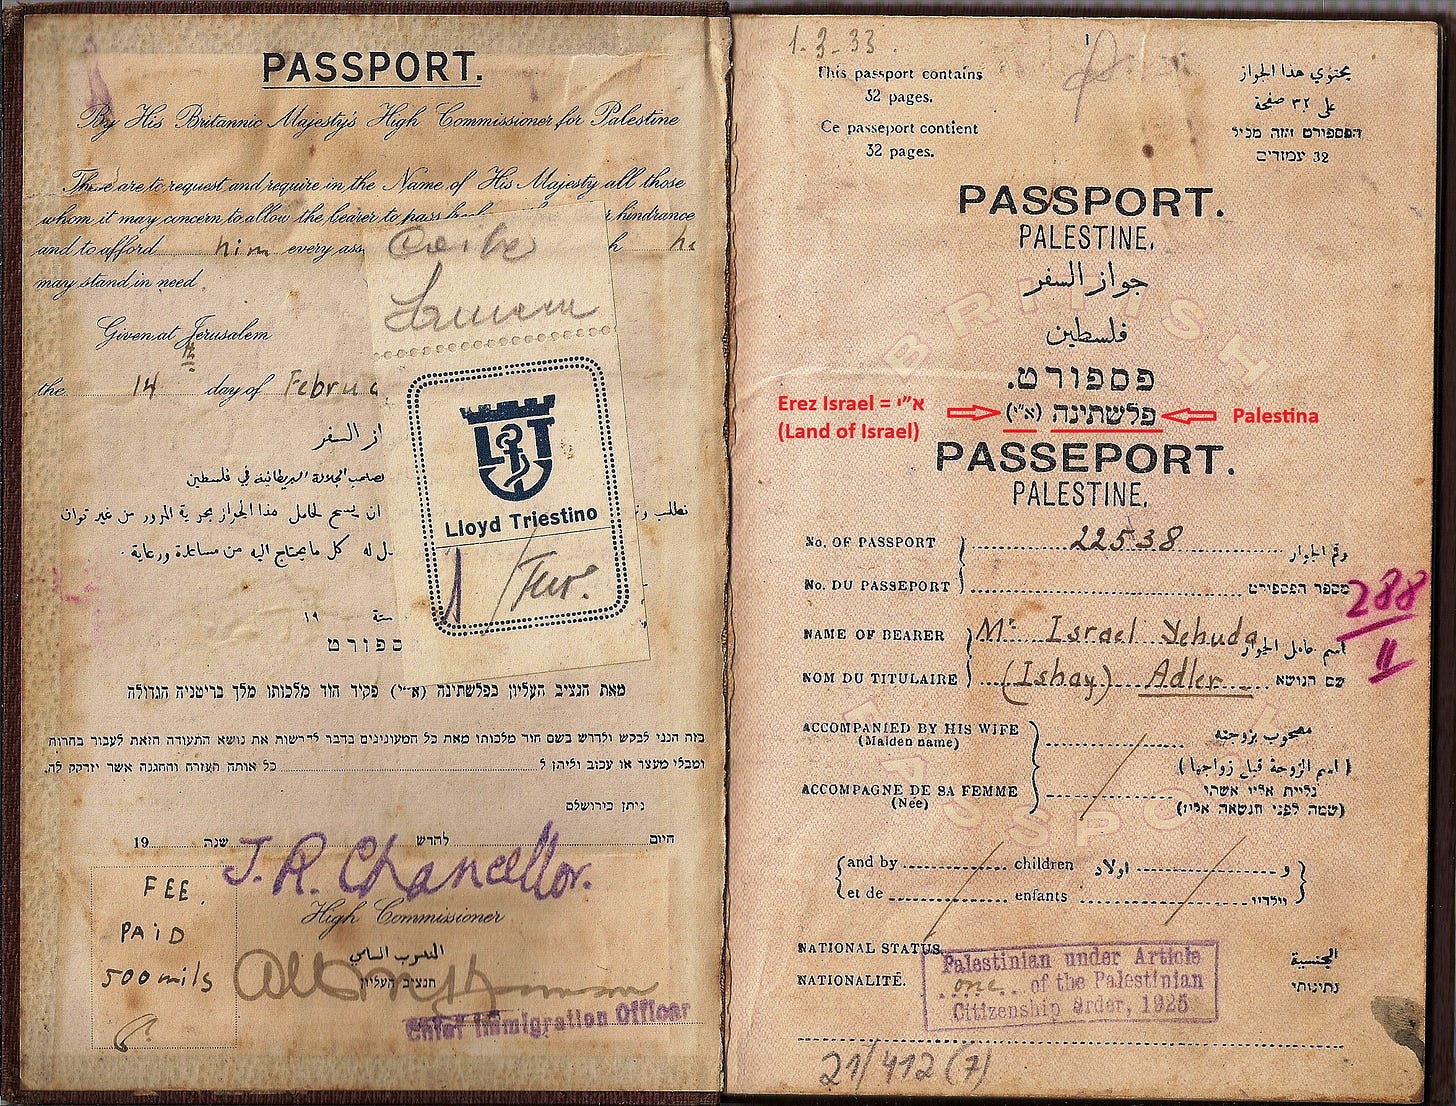 PASSPORT.
By His Britannic Majesty's High Commissioner for Palestine
These are to request and require in the Name of His Majesty all those
whom it may concern to allow the bearer to pass hindrance
and to afford him every ass h he
may stand in need
Given at Jerusalem
the 14th day of Februa
از السفر
الجلالة البريطانية في فلسطين
ان يسمح لحامل هذا الجواز بحرية المرور من غير توان
كل ما يحتاج اليه من مساعدة ورعاية.
نطلب
سنة ١٩
ספורט
מאת הנציב העליון בפלשתינה (א״י) פקיד הוד מלכותו מלך בריטניה הגדולה
בזה הנני לבקש ולדרש בשם הוד מלכותו מאת כל המעונינים בדבר להרשות את נושא התעודה הזאת לעבור בחרות
ומבלי מעצר או עכוב וליתן ל כל אותה העזרה וההגנה אשר יזדקק לה.
ניתן בירושלם
היום לחדש שנת 19
J. R. Chancellor.
High Commissioner
المندوب السامي
הנציב העליון
Chief Immigration Officer
FEE
PAID
500 mils
LT
Lloyd Triestino
1.3.33.
This passport contains
32 pages.
Ce passeport contient
32 pages.
يحتوي هذا الجواز
على ٣٢ صفحة
הפספורט הזה מכיל
32 עמודים
PASSPORT.
PALESTINE.
جواز السفر
فلسطين
פספורט.
פלשתינה (א״י)
Erez Israel = א״י
(Land of Israel)
Palestina
PASSEPORT.
PALESTINE.
BRITISH
PASSPORT
No. OF PASSPORT 22538 رقم الجواز
No. DU PASSEPORT מספר הפספורט
288
11
NAME OF BEARER Mr. Israel Yehuda اسم حامل الجواز
NOM DU TITULAIRE (Ishay) Adler שם הנושא
ACCOMPANIED BY HIS WIFE مصحوب بزوجته
(Maiden name) (اسم الزوجة قبل زواجها)
ACCOMPAGNE DE SA FEMME נלוית אליו אשתו
(Née) (שמה לפני הנשאה אליו)
and by children اولاد و
et de enfants וילדיו
NATIONAL STATUS. الجنسية
NATIONALITÉ. נתינותי
Palestinian under Article
one of the Palestinian
Citizenship Order, 1925
21/412 (7)